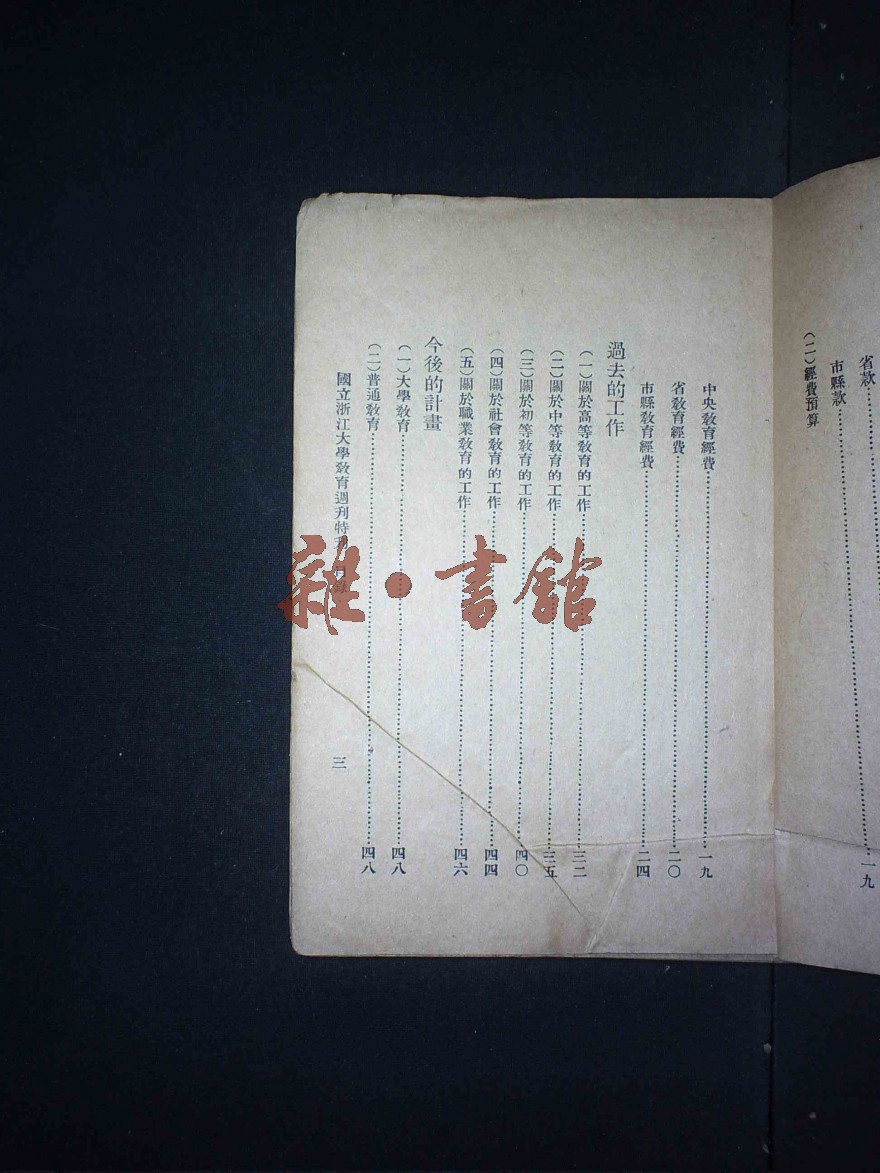 省款……一九
市縣款……
(二)經費預算
中央教育經費……一九
省教育經費……二〇
市縣教育經費……二四
過去的工作
(一)關於高等教育的工作……三二
(二)關於中等教育的工作……三五
(三)關於初等教育的工作……四〇
(四)關於社會教育的工作……四四
(五)關於職業教育的工作……四六
今後的計畫
(一)大學教育……四八
(二)普通教育……四八
國立浙江大學教育週刊特刊 目錄 三
雜·書館